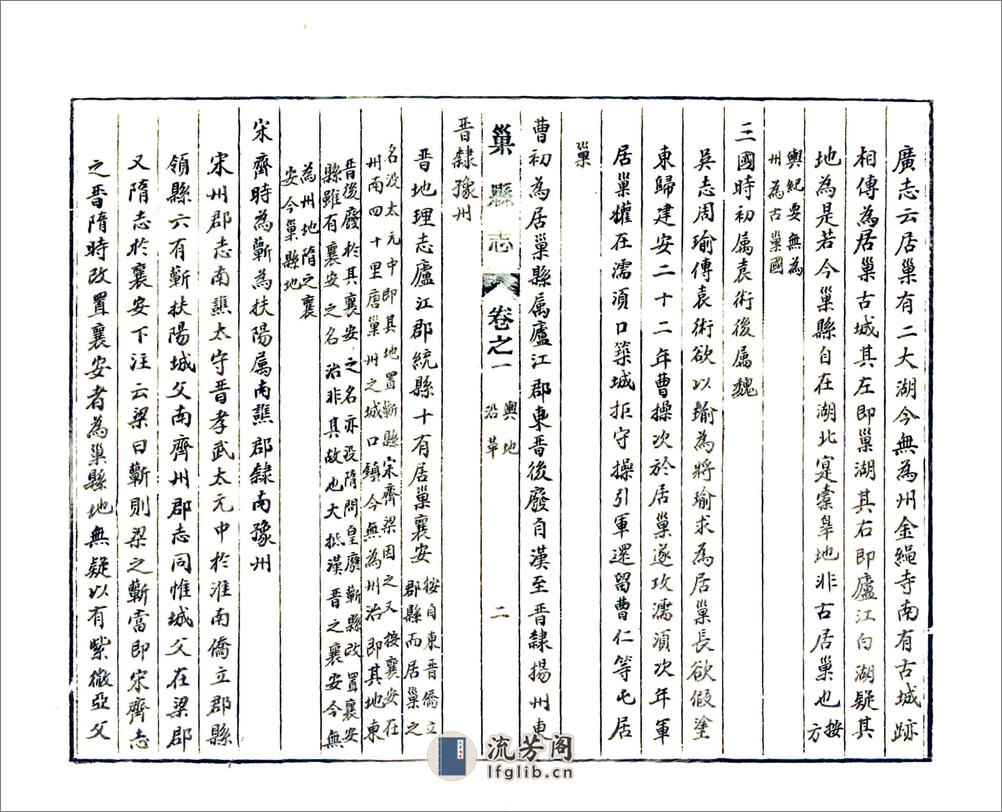 廣志云居巢有二大湖今無為州金繩寺南有古城跡
相傳為居巢古城其左即巢湖其右即廬江白湖疑其
地為是若今巢縣自在湖北寔橐皋地非古居巢也按方
輿紀要無為
州為古巢國
三國時初属袁術後属魏
吳志周瑜傳袁術欲以瑜為將瑜求為居巢長欲假塗
東歸建安二十二年曹操次於居巢遂攻濡須次年軍
居巢權在濡須口築城拒守操引軍還留曹仁等屯居
巢
曹初為居巢縣属廬江郡東晉後廢自漢至晉隸揚州東
巢縣志 卷之一 輿地 沿革 二
晉隸豫州
晉地理志廬江郡統縣十有居巢襄安按自東晉僑立
郡縣而居巢之
名没太元中即其地置蘄縣宋齊梁因之又按襄安在
州南四十里唐巢州之城口鎮今無為州治即其地東
晉後廢於其襄安之名亦没隋開皇廢蘄縣改置襄安
縣雖有襄安之名治非其故也大抵漢晉之襄安今無
為州地隋之襄
安今巢縣地
宋齊時為蘄為扶陽属南譙郡隸南豫州
宋州郡志南譙太守晉孝武太元中於淮南僑立郡縣
領縣六有蘄扶陽城父南齊州郡志同惟城父在梁郡
又隋志於襄安下注云梁曰蘄則梁之蘄當即宋齊志
之晉隋時改置襄安者為巢縣地無疑以有紫微亞父
流芳阁
lfglib.cn